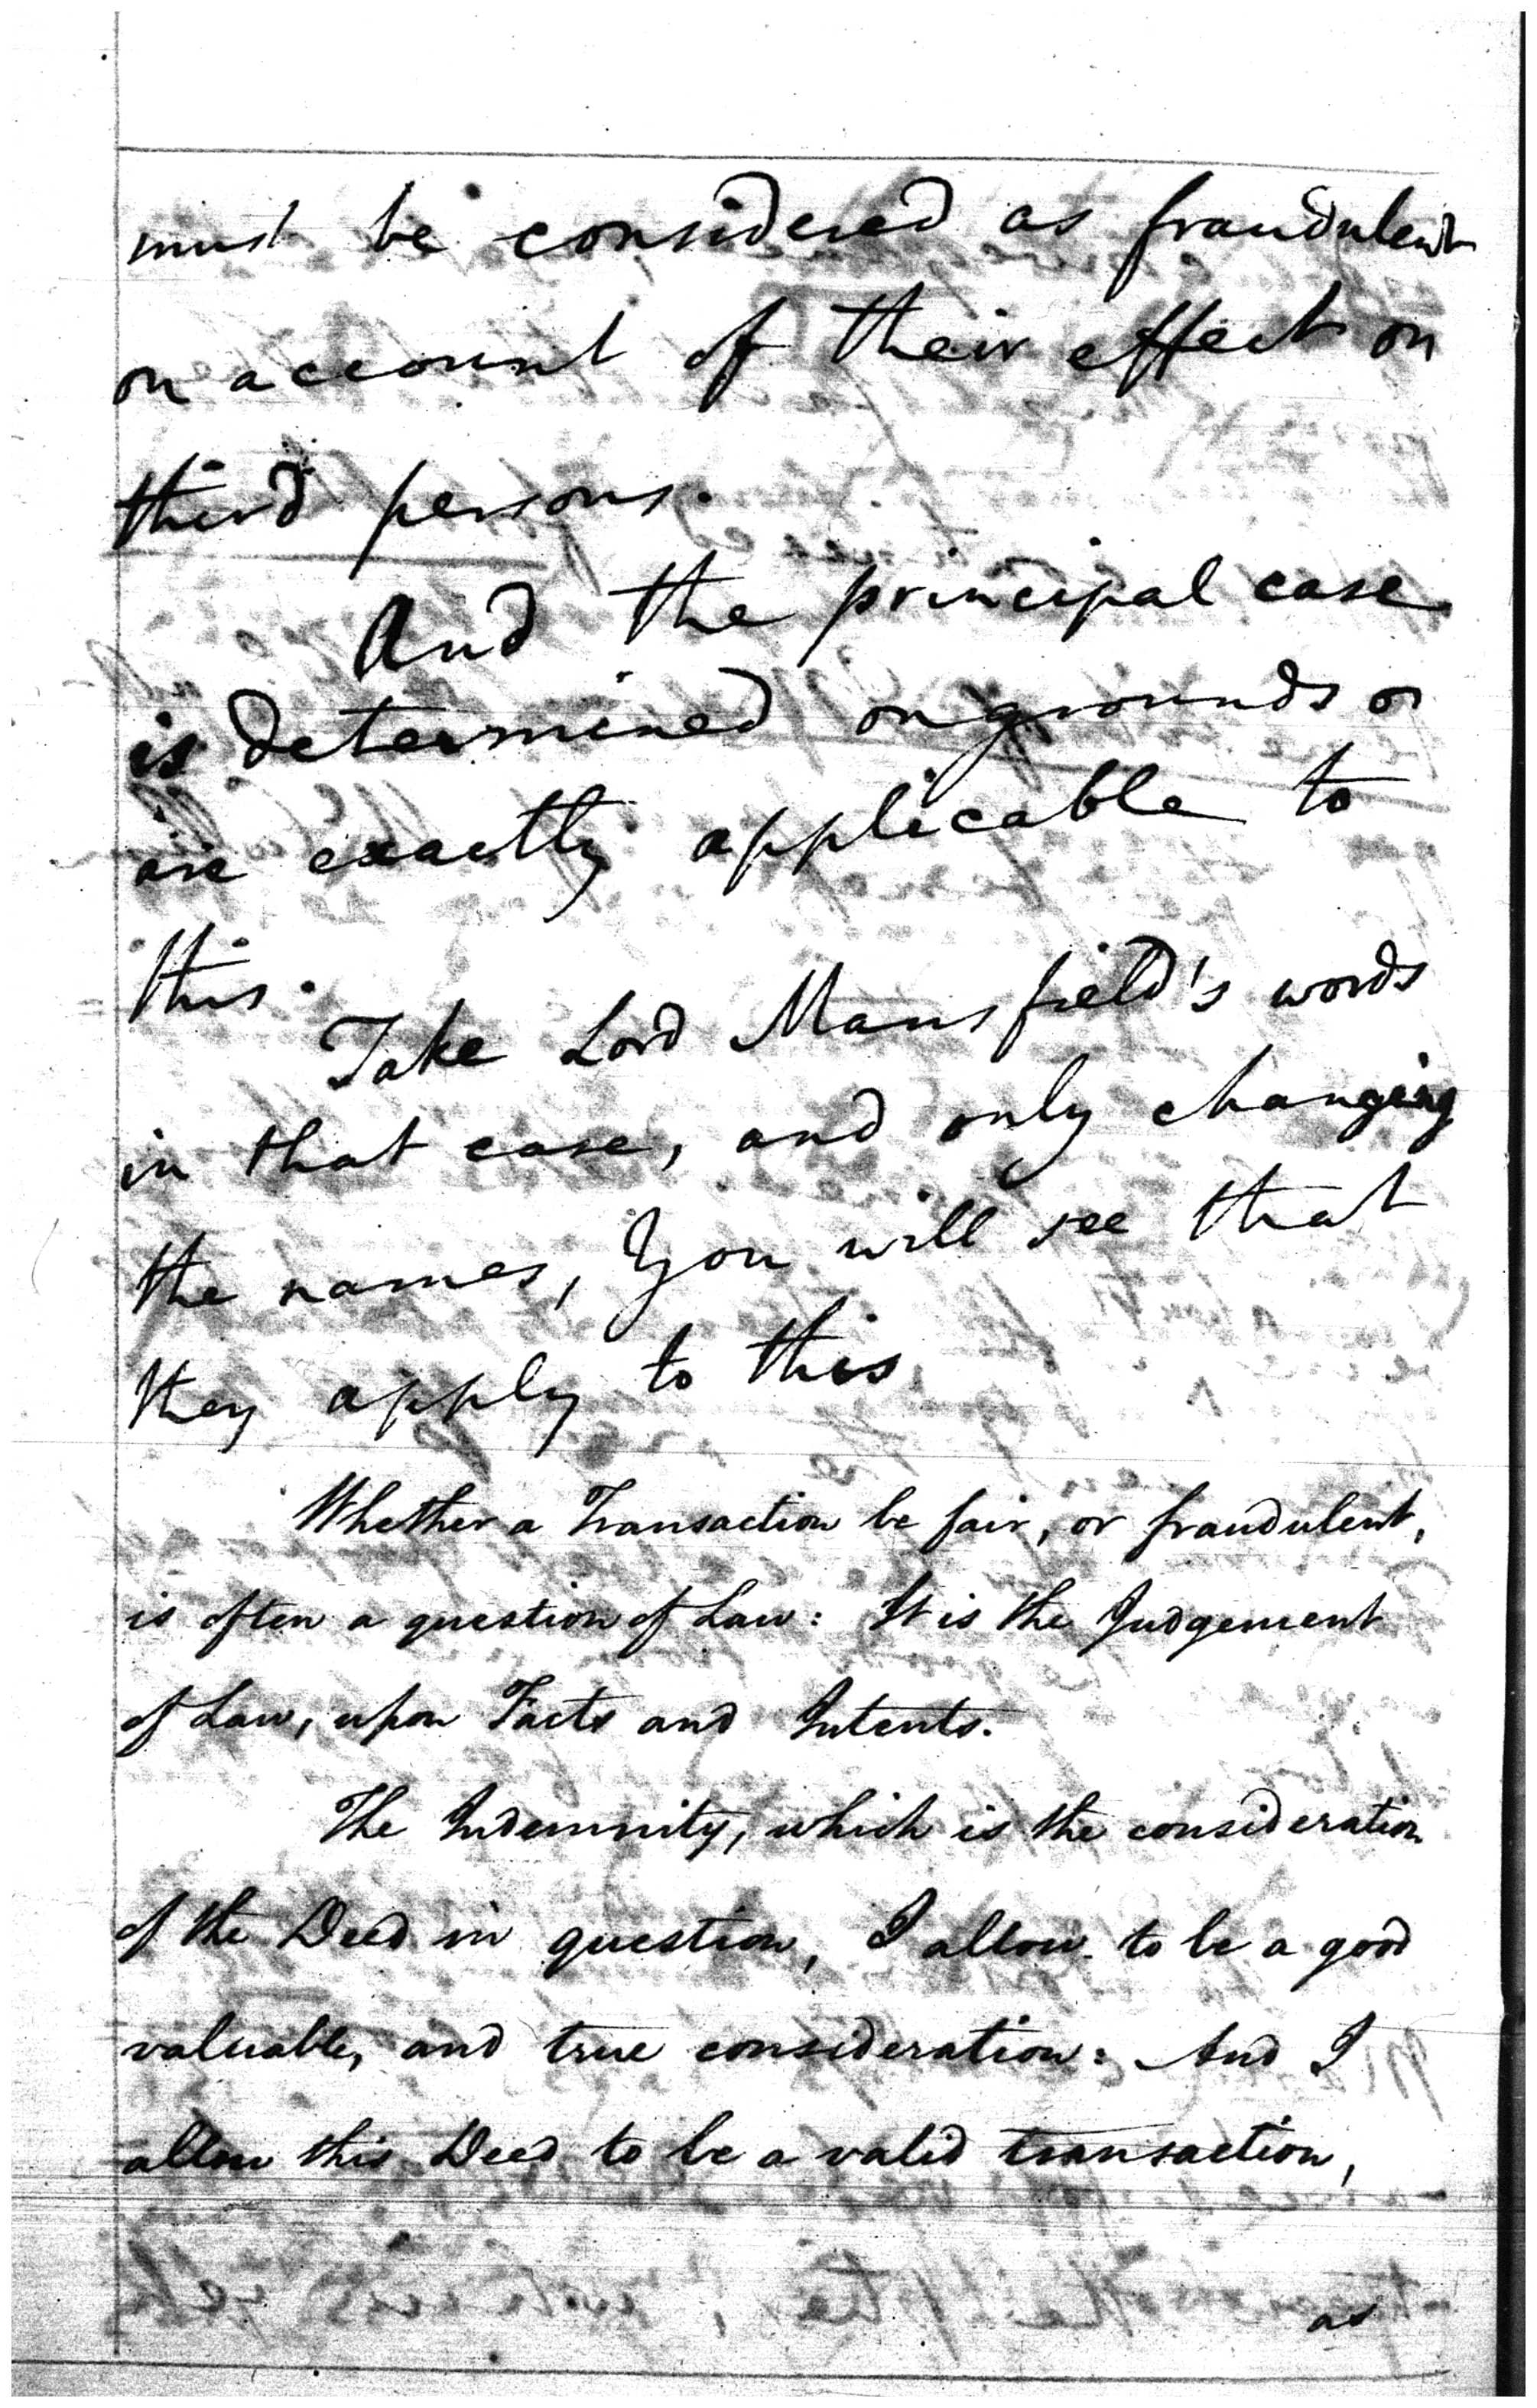 must be considered as fraudulent
on account of their effect on
third persons.
And the principal case
is determined on grounds
are exactly applicable to
this.
Take Lord Mansfield's words
in that case, and only changing
the names, You will see that
they apply to this
Whether a Transaction be fair, or fraudulent,
is often a question of Law: It is the Judgement
of Law, upon Facts and Intents.
The Indemnity, which is the consideration
of the Deed in question, I allow to be a good
valuable, and true consideration: And I
allow this Deed to be a valid transaction,
as